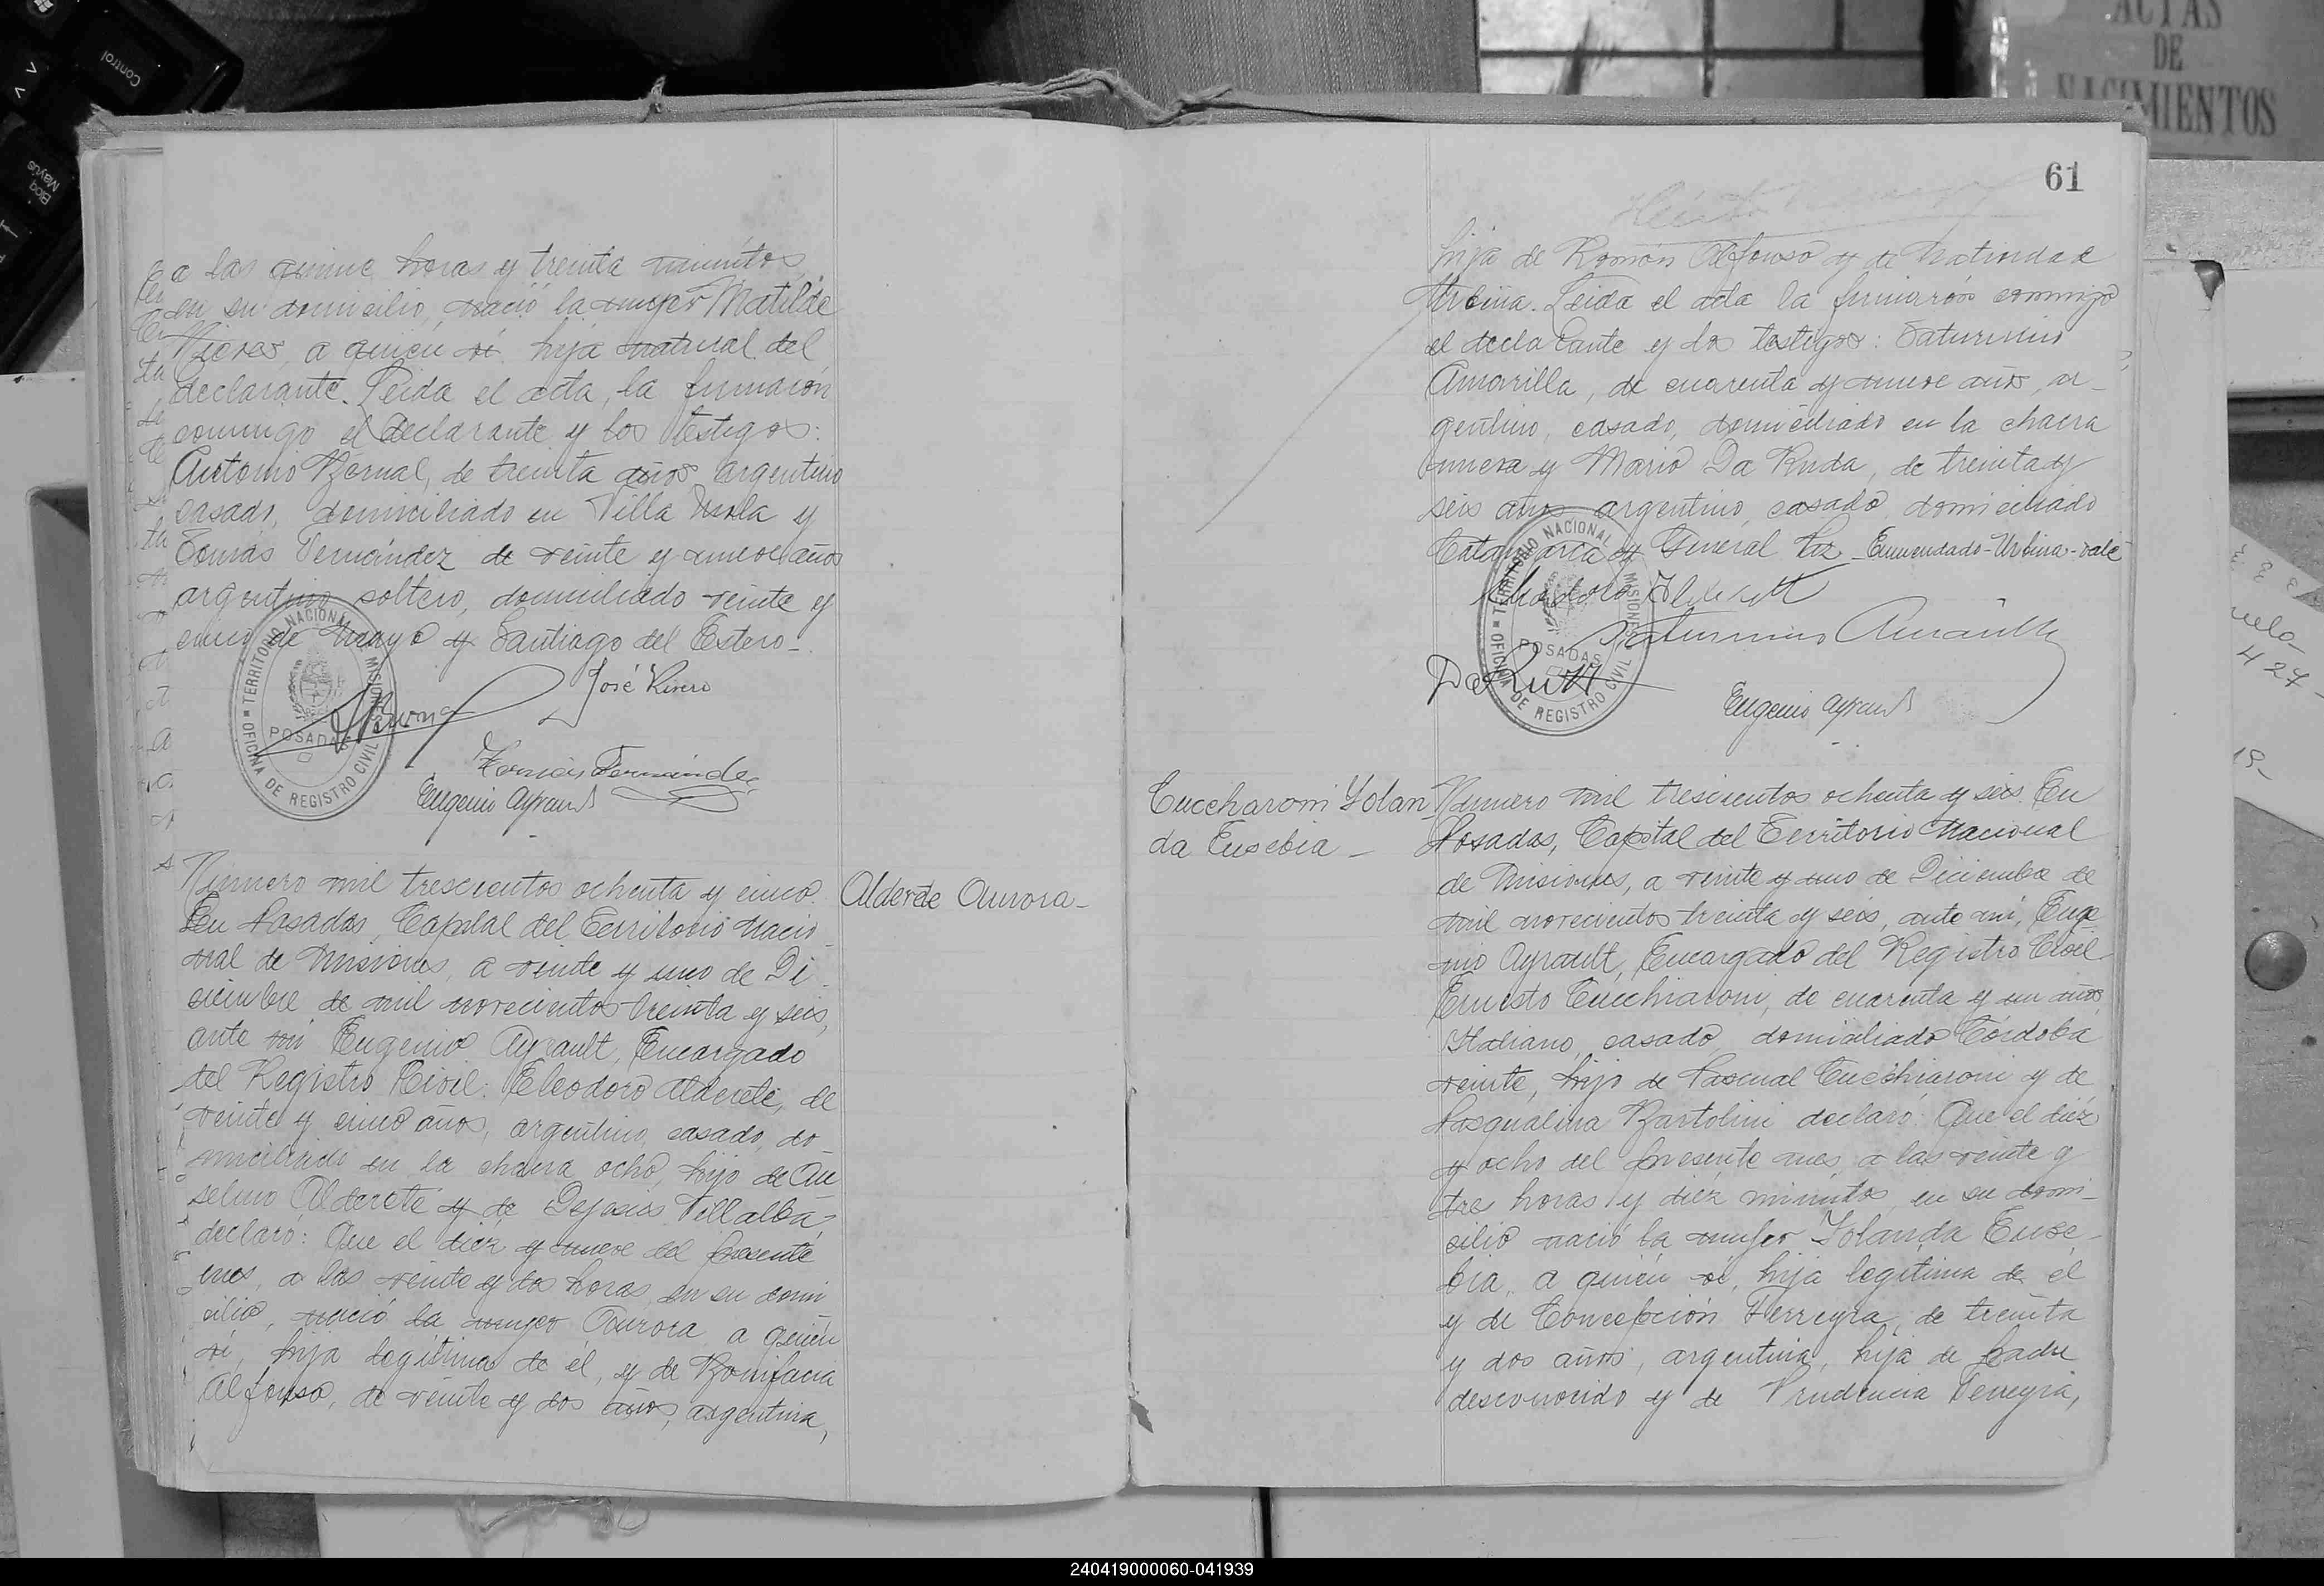 Control
Bloq
Mayús
ACTAS
DE
NACIMIENTOS
a las quince horas y treinta minutos,
en su domicilio, nació la mujer Matilde
a quién ví hija natural del
declarante. Leida el acta, la firmarón
conmigo el declarante y los testigos:
Antonio Bernal, de treinta años argentino
casado, domiciliado en Villa Urola y
Tomás Fernández de veinte y nueve años
argentino soltero, domiciliado veinte y
cinco de Mayo y Santiago del Estero-.
José Rivero
Tomás Fernández
Eugenio Ayrault
OFICINA DE REGISTRO CIVIL TERRITORIO NACIONAL MISIONES
POSADAS
Número mil trescientos ochenta y cinco.
En Posadas, Capital del Territorio Nacio
nal de Misiones, a veinte y uno de Di
ciembre de mil novecientos treinta y seis,
ante mí Eugenio Ayrault, Encargado
del Registro Civil: Eleodoro Alderete, de
veinte y cinco años, argentino, casado, do-
miciliado en la chacra ocho, hijo de An
selmo Alderete y de Villalba
declaró: Que el diez y nueve del presente
mes, a las veinte y dos horas, en su domi
cilio, nació la mujer Aurora a quién
ví, hija legítima de él, y de Bonifacia
Alfonso, de veinte y dos años, argentina,
Alderete Aurora-
61
hija de Román Alfonso y de Natividad
Urbina. Leida el acta la firmarón conmigo
el declarante y los testigos: Saturnino
Amarilla, de cuarenta y nueve años, ar-
gentino, casado, domiciliado en la chacra
nueva y Mario Da Ruda, de treinta y
seis años argentino, casado domiciliado
Catamarca y General Paz - Enmendado-Urbina-vale
Saturnino Amarilla
Eugenio Ayrault
OFICINA DE REGISTRO CIVIL TERRITORIO NACIONAL MISIONES
POSADAS
Cuccharoni Yolan-
da Eusebia -
Número mil trescientos ochenta y seis. En
Posadas, Capital del Territorio Nacional
de Misiones, a veinte y uno de Diciembre de
mil novecientos treinta y seis, ante mí, Euge
nio Ayrault, Encargado del Registro Civil
Ernesto Cucchiaroni, de cuarenta y un años
Italiano, casado, domiciliado Córdoba
veinte, hijo de Pascual Cucchiaroni y de
Pasqualina Bartolini declaró: Que el diéz
y ocho del presente mes, a las veinte y
tres horas y diéz minutos, en su domi-
cilio nació la mujer Yolanda Euse-
bia, a quién ví, hija legítima de él
y de Concepción Ferreyra, de treinta
y dos años, argentina, hija de padre
desconocido y de Prudencia Ferreyra,
240419000060-041939